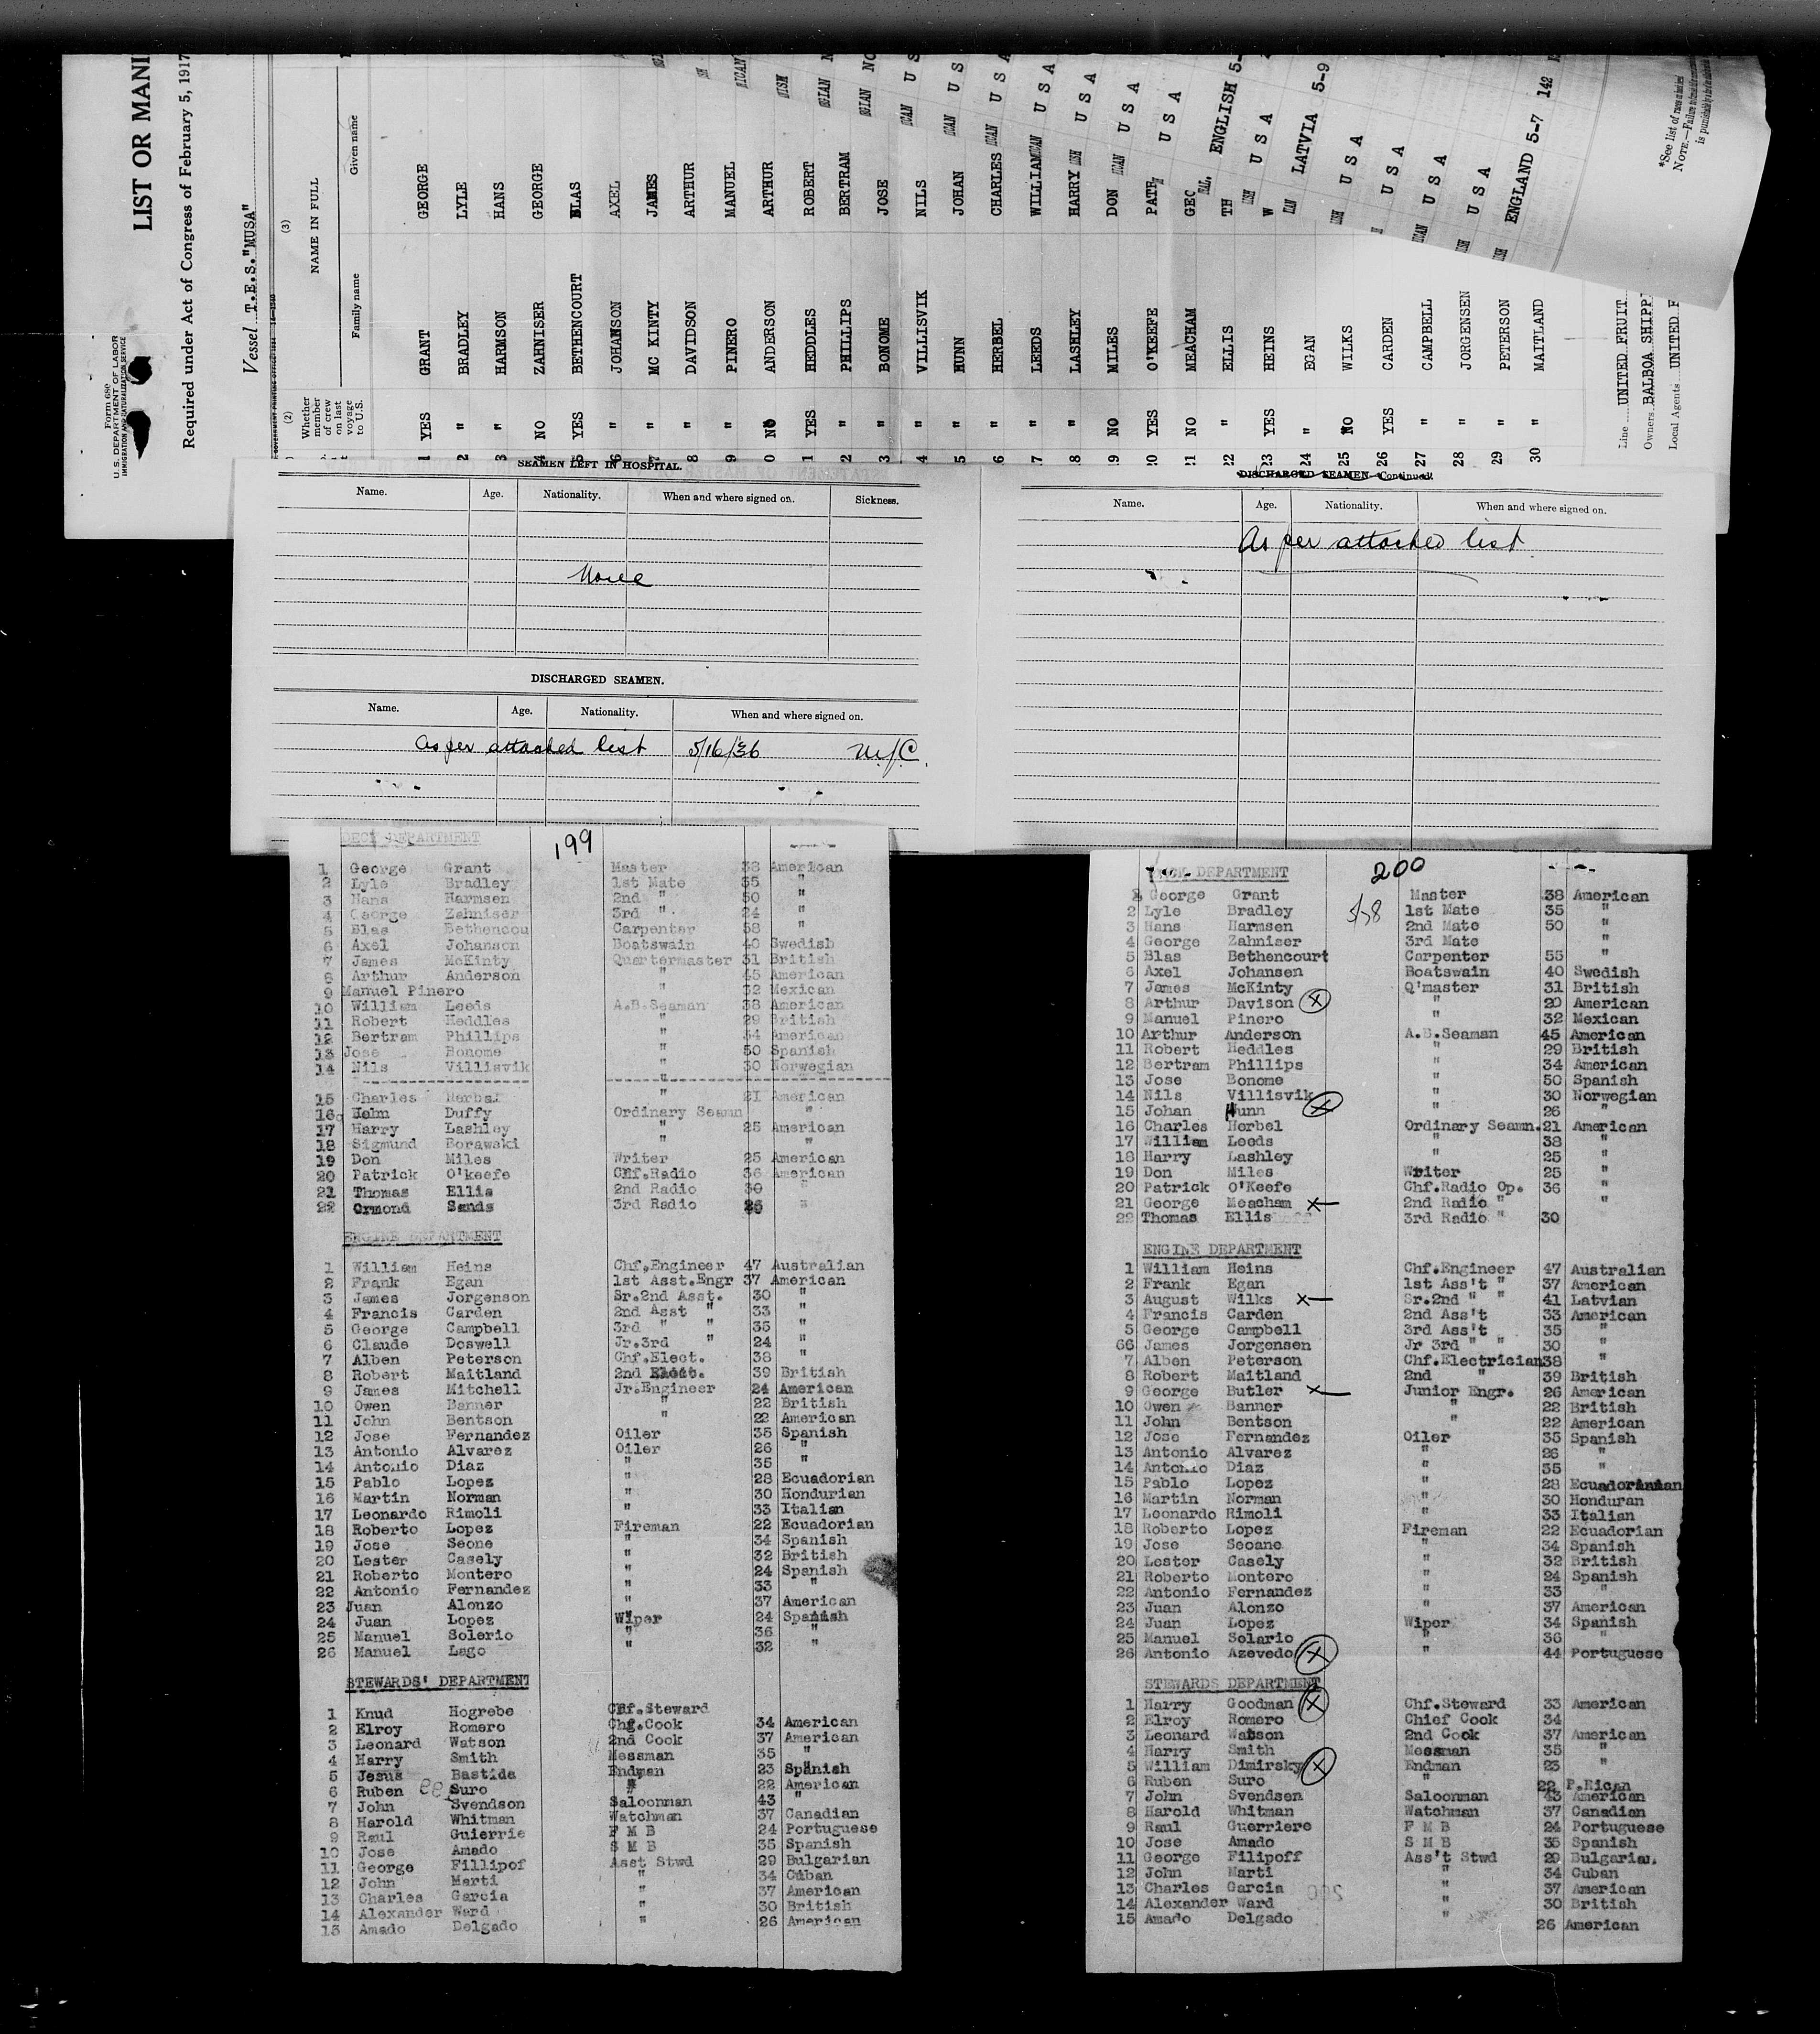 Form 686
U. S. DEPARTMENT OF LABOR
IMMIGRATION AND NATURALIZATION SERVICE
LIST OR MANI
Required under Act of Congress of February 5, 1917
Vessel T.E.S."MUSA"
(2) (3)
Whether member of crew on last voyage to U.S.
NAME IN FULL
Family name Given name
1 YES GRANT GEORGE
2 " BRADLEY LYLE
3 " HARMSON HANS
NO ZAHNISER GEORGE
YES BETHENCOURT BLAS
6 " JOHANSON AXEL
7 " MC KINTY JAMES
8 " DAVIDSON ARTHUR
9 " PINERO MANUEL
0 NO ANDERSON ARTHUR
1 YES HEDDLES ROBERT
2 " PHILLIPS BERTRAM
3 " BONOME JOSE
4 " VILLISVIK NILS
5 " HUNN JOHAN U S
6 " HERBEL CHARLES U S A
7 " LEEDS WILLIAM U S A
8 " LASHLEY HARRY U S A
19 NO MILES DON U S A
20 YES O'KEEFE PATR U S A
21 NO MEACHAM GEO
22 " ELLIS TH ENGLISH 5-
23 YES HEINS W U S A
24 " EGAN LATVIA 5-9
25 NO WILKS U S A
26 YES CARDEN U S A
27 " CAMPBELL U S A
28 " JORGENSEN U S A
29 " PETERSON
30 " MAITLAND ENGLAND 5-7 142
Line UNITED FRUIT
Owners BALBOA SHIPP
Local Agents UNITED F
*See list of races
NOTE.—Failure
is punishable
SEAMEN LEFT IN HOSPITAL.
Name. Age. Nationality. When and where signed on. Sickness.
None
DISCHARGED SEAMEN.
Name. Age. Nationality. When and where signed on.
As per attached list 5/16/36
DISCHARGED SEAMEN—Continued
Name. Age. Nationality. When and where signed on.
As per attached list
DECK DEPARTMENT 199
1 George Grant Master 38 American
2 Lyle Bradley 1st Mate 35 "
3 Hans Harmsen 2nd " 50 "
4 George Zahniser 3rd " 24 "
5 Blas Bethencou Carpenter 58 "
6 Axel Johanson Boatswain 40 Swedish
7 James McKinty Quartermaster 31 British
8 Arthur Anderson " 45 American
9 Manuel Pinero " 32 Mexican
10 William Leeds A.B.Seaman 38 American
11 Robert Heddles " 29 British
12 Bertram Phillips " 34 American
13 Jose Bonome " 50 Spanish
14 Nils Villisvik " 30 Norwegian
15 Charles Herbel " 21 American
16 John Duffy Ordinary Seamn "
17 Harry Lashley " 25 American
18 Sigmund Borawski " "
19 Don Miles Writer 25 American
20 Patrick O'keefe Chf.Radio 36 American
21 Thomas Ellis 2nd Radio 30 "
22 Ormond Sands 3rd Radio 26 "
ENGINE DEPARTMENT
1 William Heins Chf.Engineer 47 Australian
2 Frank Egan 1st Asst.Engr 37 American
3 James Jorgenson Sr.2nd Asst. 30 "
4 Francis Carden 2nd Asst " 33 "
5 George Campbell 3rd " " 35 "
6 Claude Doswell Jr.3rd " 24 "
7 Alben Peterson Chf.Elect. 38 "
8 Robert Maitland 2nd Elect. 39 British
9 James Mitchell Jr.Engineer 24 American
10 Owen Banner " 22 British
11 John Bentson " 22 American
12 Jose Fernandez Oiler 35 Spanish
13 Antonio Alvarez Oiler 26 "
14 Antonio Diaz " 35 "
15 Pablo Lopez " 28 Ecuadorian
16 Martin Norman " 30 Hondurian
17 Leonardo Rimoli " 33 Italian
18 Roberto Lopez Fireman 22 Ecuadorian
19 Jose Seone " 34 Spanish
20 Lester Casely " 32 British
21 Roberto Montero " 24 Spanish
22 Antonio Fernandez " 33 "
23 Juan Alonzo " 37 American
24 Juan Lopez Wiper 24 Spanish
25 Manuel Solerio " 36 "
26 Manuel Lago " 32 "
STEWARDS' DEPARTMENT
1 Knud Hogrebe Chf.Steward
2 Elroy Romero Chf.Cook 34 American
3 Leonard Watson 2nd Cook 37 American
4 Harry Smith Messman 35 "
5 Jesus Bastida Endman 23 Spanish
6 Ruben Suro " 22 American
7 John Svendson Saloonman 43 "
8 Harold Whitman Watchman 37 Canadian
9 Raul Guierrie F M B 24 Portuguese
10 Jose Amado S M B 35 Spanish
11 George Fillipof Asst Stwd 29 Bulgarian
12 John Marti " 34 Cuban
13 Charles Garcia " 37 American
14 Alexander Ward " 30 British
15 Amado Delgado " 26 American
DECK DEPARTMENT 200
1 George Grant Master 38 American
2 Lyle Bradley 1st Mate 35 "
3 Hans Harmsen 2nd Mate 50 "
4 George Zahniser 3rd Mate "
5 Blas Bethencourt Carpenter 55 "
6 Axel Johansen Boatswain 40 Swedish
7 James McKinty Q'master 31 British
8 Arthur Davison X " 20 American
9 Manuel Pinero " 32 Mexican
10 Arthur Anderson A.B.Seaman 45 American
11 Robert Heddles " 29 British
12 Bertram Phillips " 34 American
13 Jose Bonome " 50 Spanish
14 Nils Villisvik " 30 Norwegian
15 Johan Hunn X " 26 "
16 Charles Herbel Ordinary Seamn. 21 American
17 William Leeds " 38 "
18 Harry Lashley " 25 "
19 Don Miles Writer 25 "
20 Patrick O'Keefe Chf.Radio Op. 36 "
21 George Meacham X 2nd Radio " "
22 Thomas Ellis 3rd Radio " 30
ENGINE DEPARTMENT
1 William Heins Chf.Engineer 47 Australian
2 Frank Egan 1st Ass't " 37 American
3 August Wilks X Sr.2nd " " 41 Latvian
4 Francis Carden 2nd Ass't 33 American
5 George Campbell 3rd Ass't 35 "
66 James Jorgensen Jr 3rd " " 30 "
7 Alben Peterson Chf.Electrician 38 "
8 Robert Maitland 2nd " 39 British
9 George Butler X Junior Engr. 26 American
10 Owen Banner " 22 British
11 John Bentson " 22 American
12 Jose Fernandez Oiler 35 Spanish
13 Antonio Alvarez " 26 "
14 Antonio Diaz " 35 "
15 Pablo Lopez " 28
16 Martin Norman " 30 Honduran
17 Leonardo Rimoli " 33 Italian
18 Roberto Lopez Fireman 22 Ecuadorian
19 Jose Seoane " 34 Spanish
20 Lester Casely " 32 British
21 Roberto Montero " 24 Spanish
22 Antonio Fernandez " 33 "
23 Juan Alonzo " 37 American
24 Juan Lopez Wiper 34 Spanish
25 Manuel Solario " 36 "
26 Antonio Azevedo X " 44 Portuguese
STEWARDS DEPARTMENT
1 Harry Goodman X Chf.Steward 33 American
2 Elroy Romero Chief Cook 34
3 Leonard Watson 2nd Cook 37 American
4 Harry Smith Messman 35 "
5 William Dimirsky X Endman 23 "
6 Ruben Suro " 22 P.Rican
7 John Svendsen Saloonman 43 American
8 Harold Whitman Watchman 37 Canadian
9 Raul Guerriere F M B 24 Portuguese
10 Jose Amado S M B 35 Spanish
11 George Filipoff Ass't Stwd 29 Bulgarian.
12 John Marti " 34 Cuban
13 Charles Garcia " 37 American
14 Alexander Ward " 30 British
15 Amado Delgado " 26 American